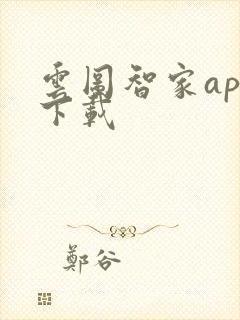 雲圖智家ap
下載
鄭谷